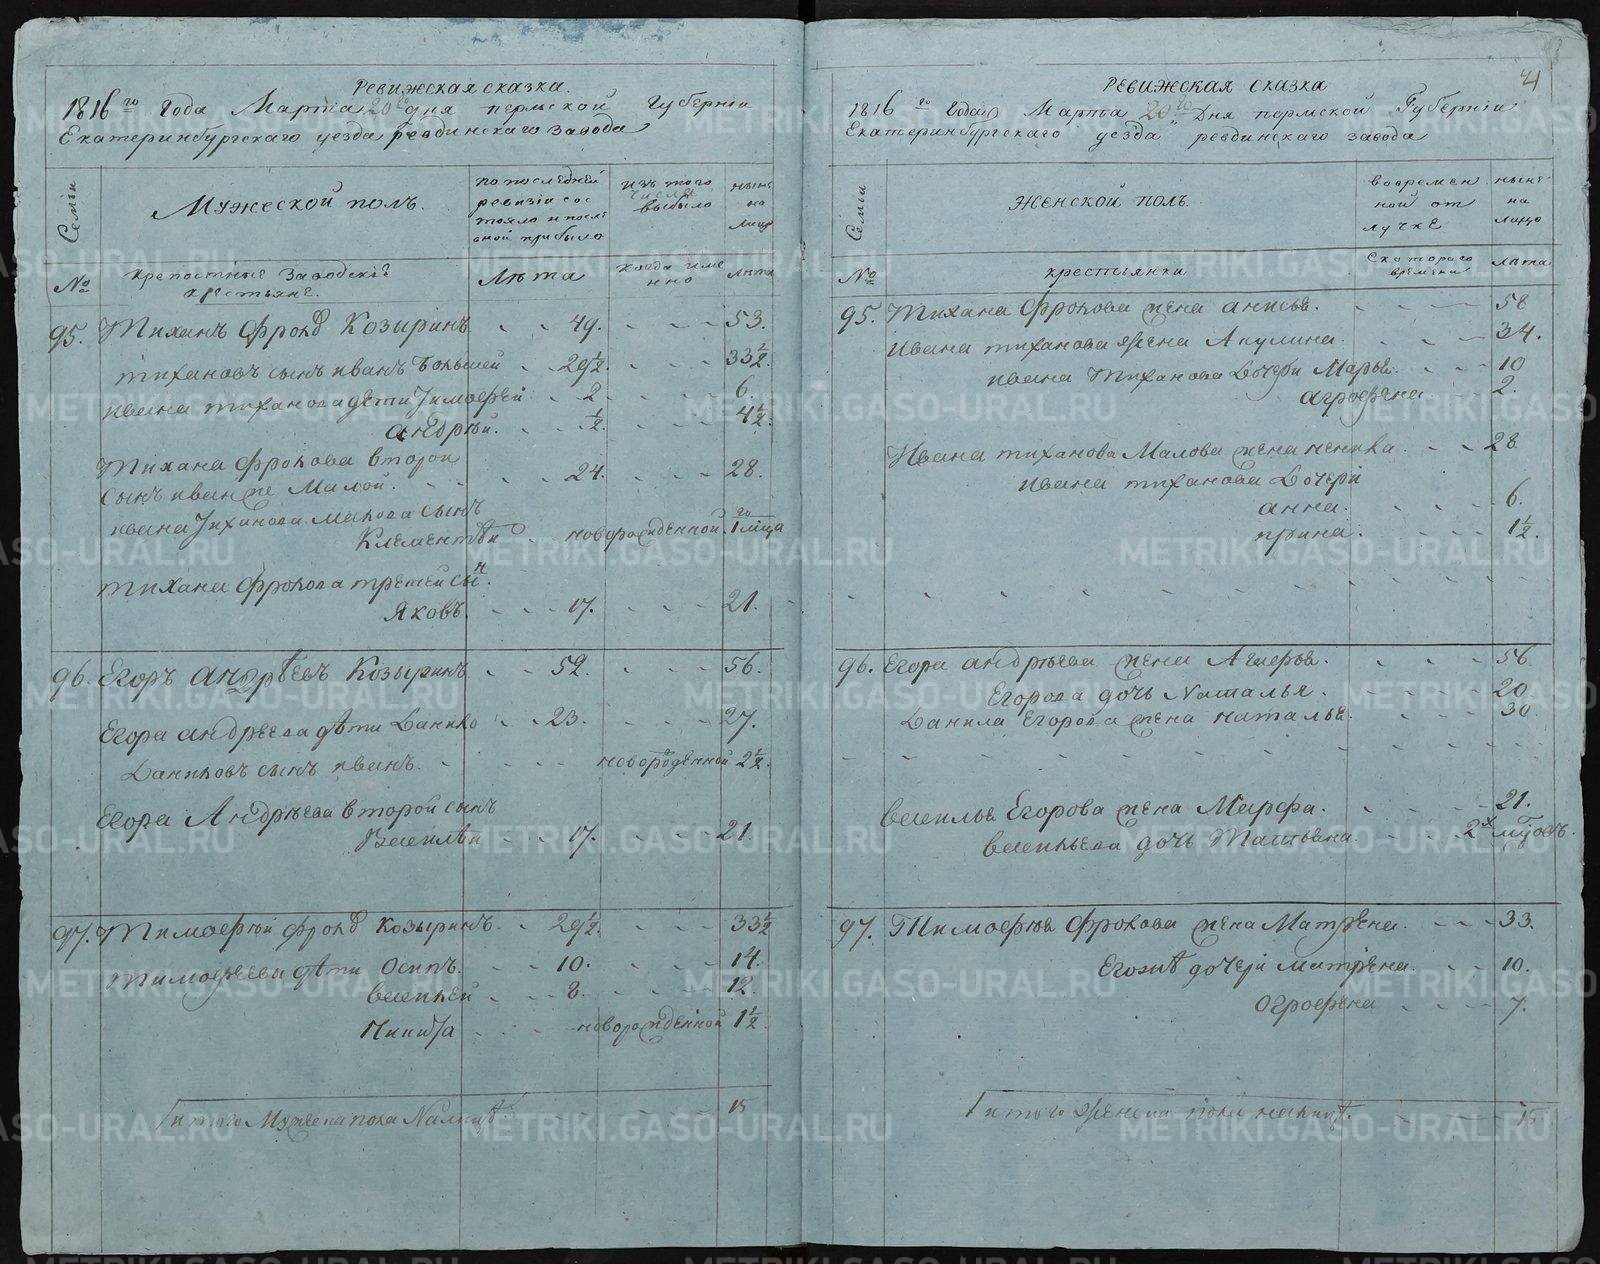 Ревижская сказка.
1816го Года Марта 20го дня пермской Губерніи
Екатеринбургскаго уезда ревдинскаго завода
Семіи
Мужеской полъ.
по последней
ревизіи сос
тояло и после
оной прибыло
изъ того
числа
выбыло
ныне
на
лицо
№
крепостные Заводскіе
крестьяне.
Лѣта
когда име
нно
Лѣта
95. Тиханъ Фроловъ Козыринъ - - 49. - - - 53.
тихановъ сынъ иванъ Большей - 29½. - - - 33½.
ивана тиханова дети Тимофей - 2 - - - 6.
андрей. - - ½. - - - 4½.
Тихана Фролова второй
сынъ иван же Малой. - - 24. - - - 28.
ивана Тиханова Малова сынъ
Клементей - новорожденной. 1го мѣца
тихана Фролова третей сын.
Яковъ. - - 17. - - - 21.
96. Егоръ Андреевъ Козыринъ - - 52. - - 56.
Егора андреева дѣти Данило - - 23. - - - 27.
Даниловъ сынъ иванъ. - - - - новорожденной 2½.
Егора Андреева второй сынъ
Василей - - 17. - - - 21.
97. Тимофей Фроловъ Козыринъ. - 29½. - - - 33½
тимофеева дѣти Осипъ. - - 10. - - - 14.
василей - - 8. - - - 12.
Никита - - - новорожденной 1½.
итого Мужска пола Налицѣ - - - 15
21
Ревижская сказка
1816го Года Марта 20го Дня пермской Губерніи
Екатеринбургскаго уезда ревдинскаго завода
Семіи
Женской полъ.
во времен
ной от
лучке
ныне
на
лицо
№
крестьянки
с котораго
времени
лѣта
95. Тихана Фролова жена анисья. - - - 58
Ивана тиханова жена Акулина. - - - 34.
ивана Тиханова Дочери Марья. - - - 10
агрофена - - 2.
Ивана тиханова Малова жена - - - 28
ивана тиханова Дочери
анна. - - - 6.
ирина. - - - 1½.
96. Егора андреева жена - - - 56
Егорова дочь Наталья. - - - 20
Данила Егорова жена наталья. - - - 30
василья Егорова жена Марфа. - - - 21.
васильева дочь Татьяна. - - 2х
97. Тимофея Фролова жена Матрена. - - - 33.
Егожѣ дочери матрена. - - - 10.
Огрофена - - - 7.
итого женска пола налицѣ. - - - 15
METRIKI.GASO-URAL.RU